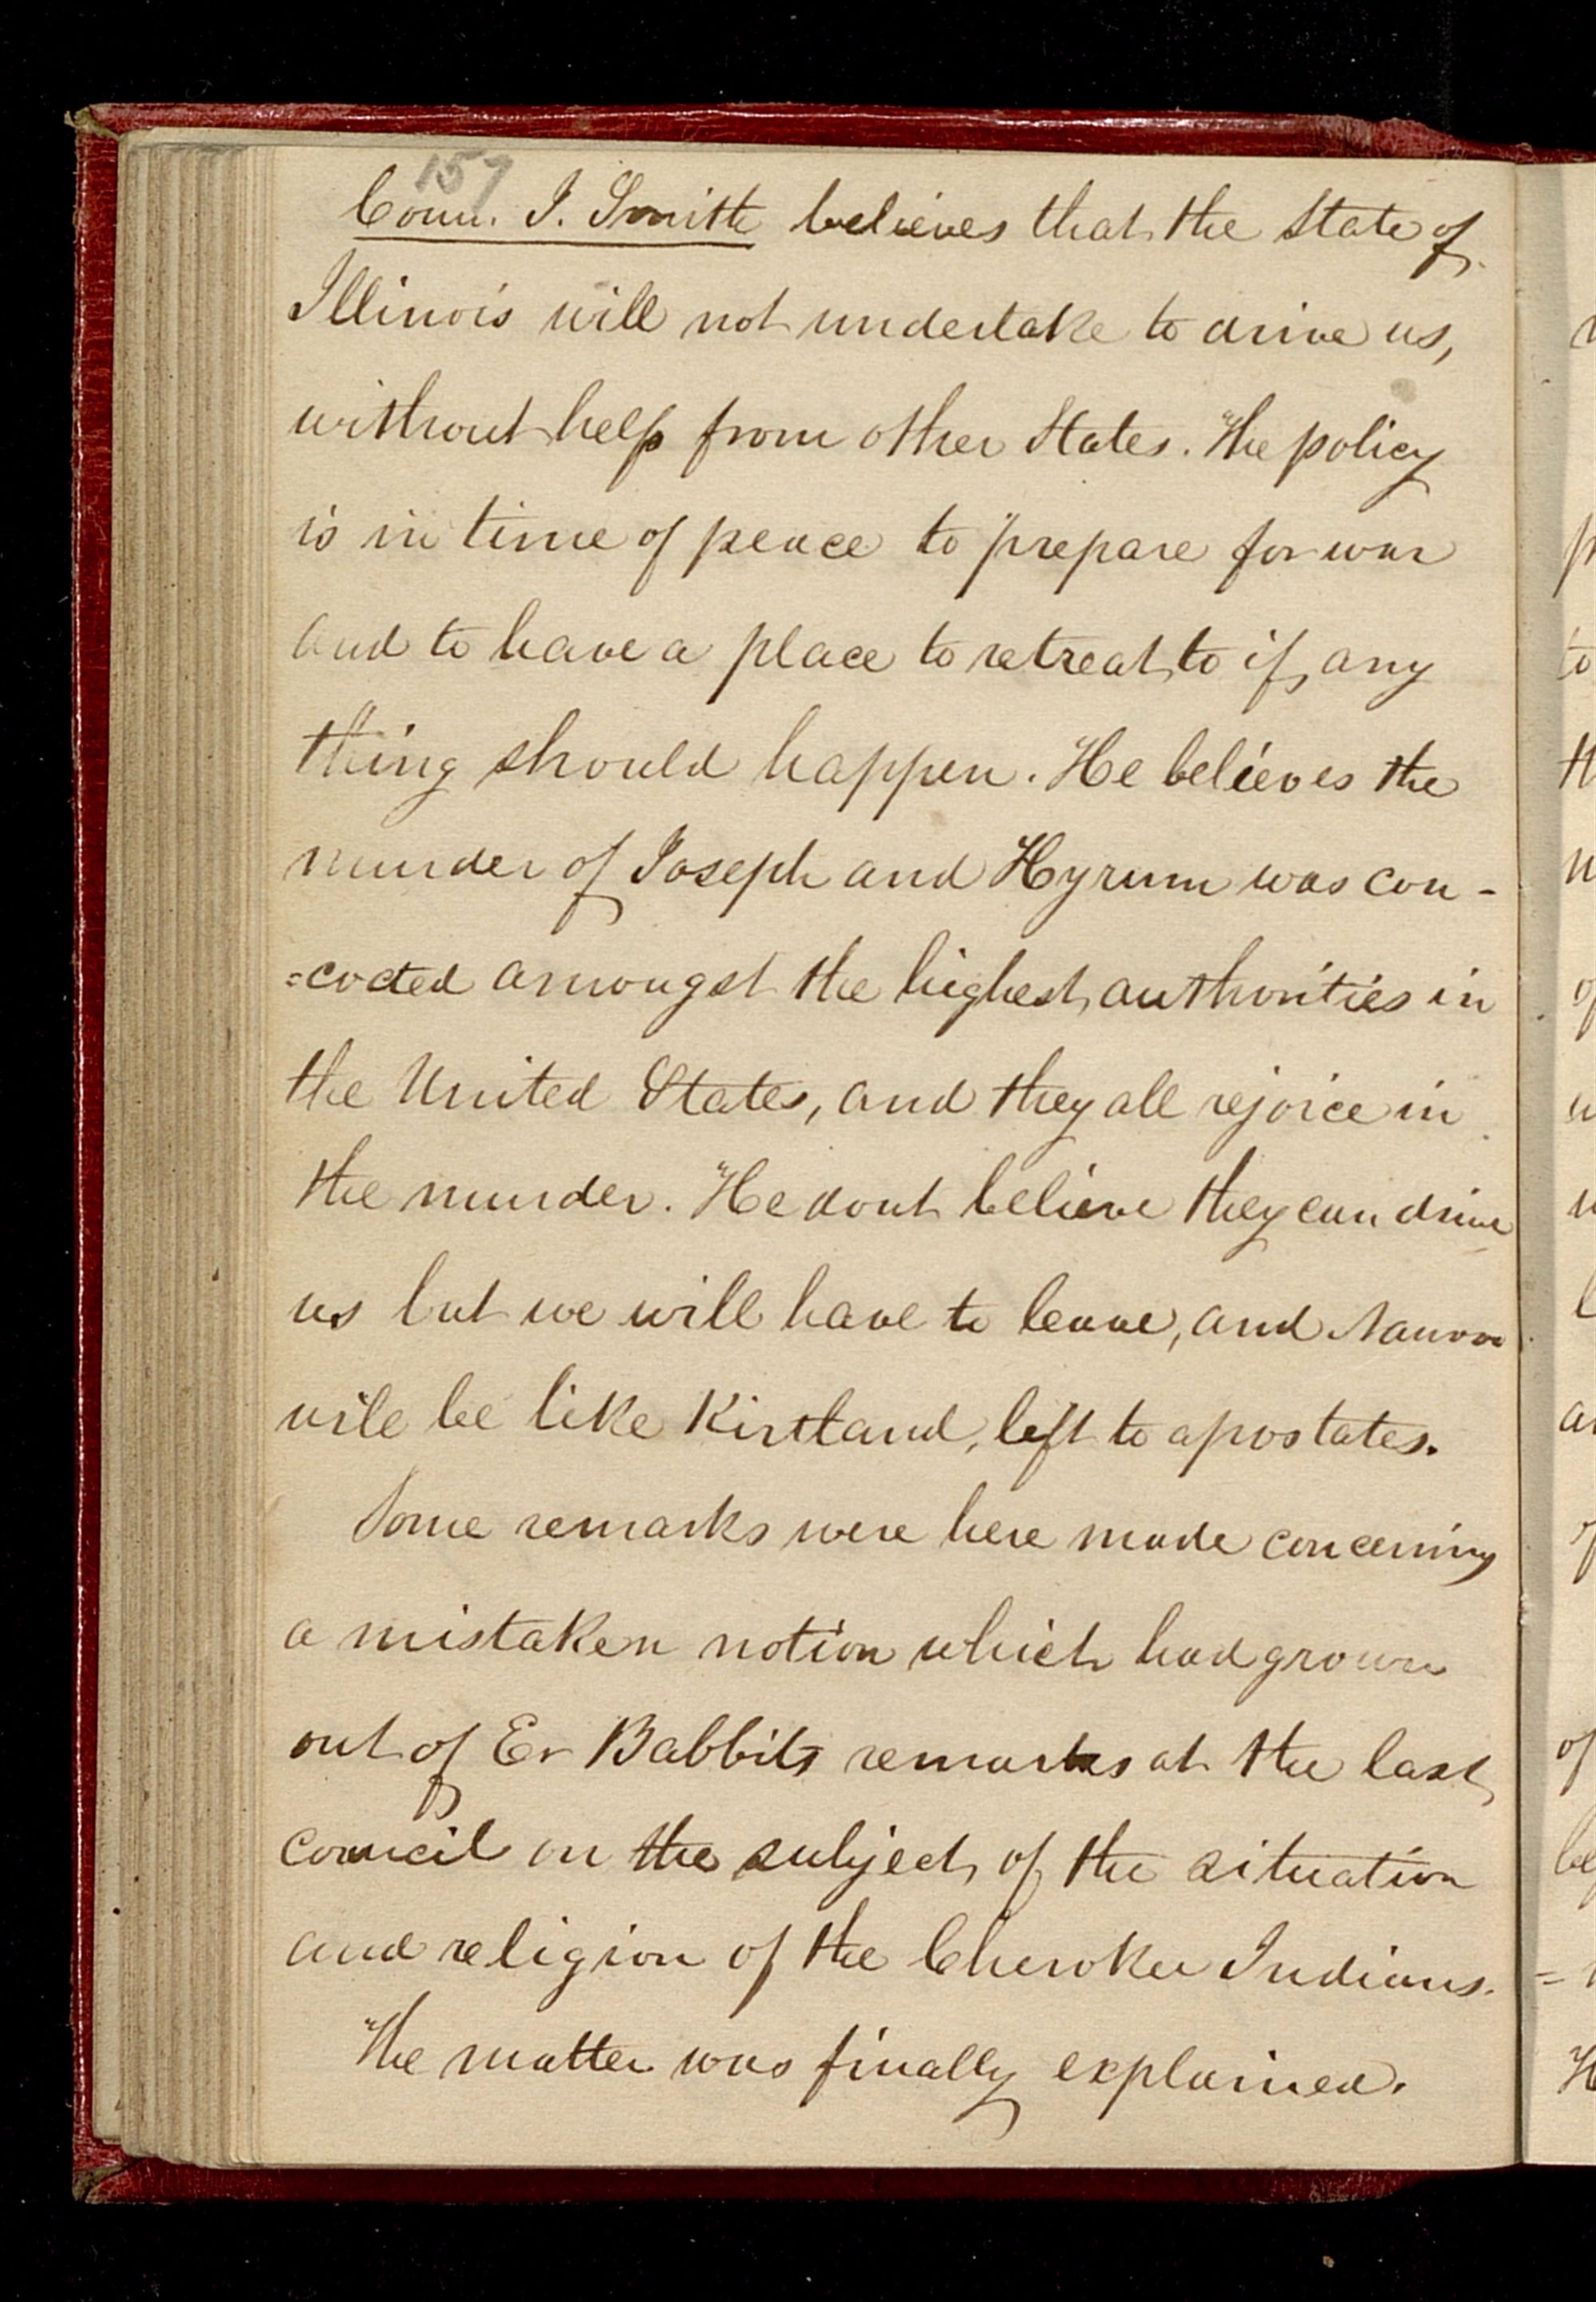 157
Coun. J. Smith believes that the State of
Illinois will not undertake to drive us,
without help from other States. The policy
is in time of peace to prepare for war
and to have a place to retreat to if any
thing should happen. He believes the
murder of Joseph and Hyrum was con-
=cocted amongst the highest authorities in
the United States, and they all rejoice in
the murder. He dont believe they can drive
us but we will have to leave, and Nauvoo
will be like Kirtland, left to apostates.
Some remarks were here made concerning
a mistaken notion which had grown
out of Er Babbits remarks at the last
council on the subject of the situation
and religion of the Cherokee Indians.
The matter was finally explained.